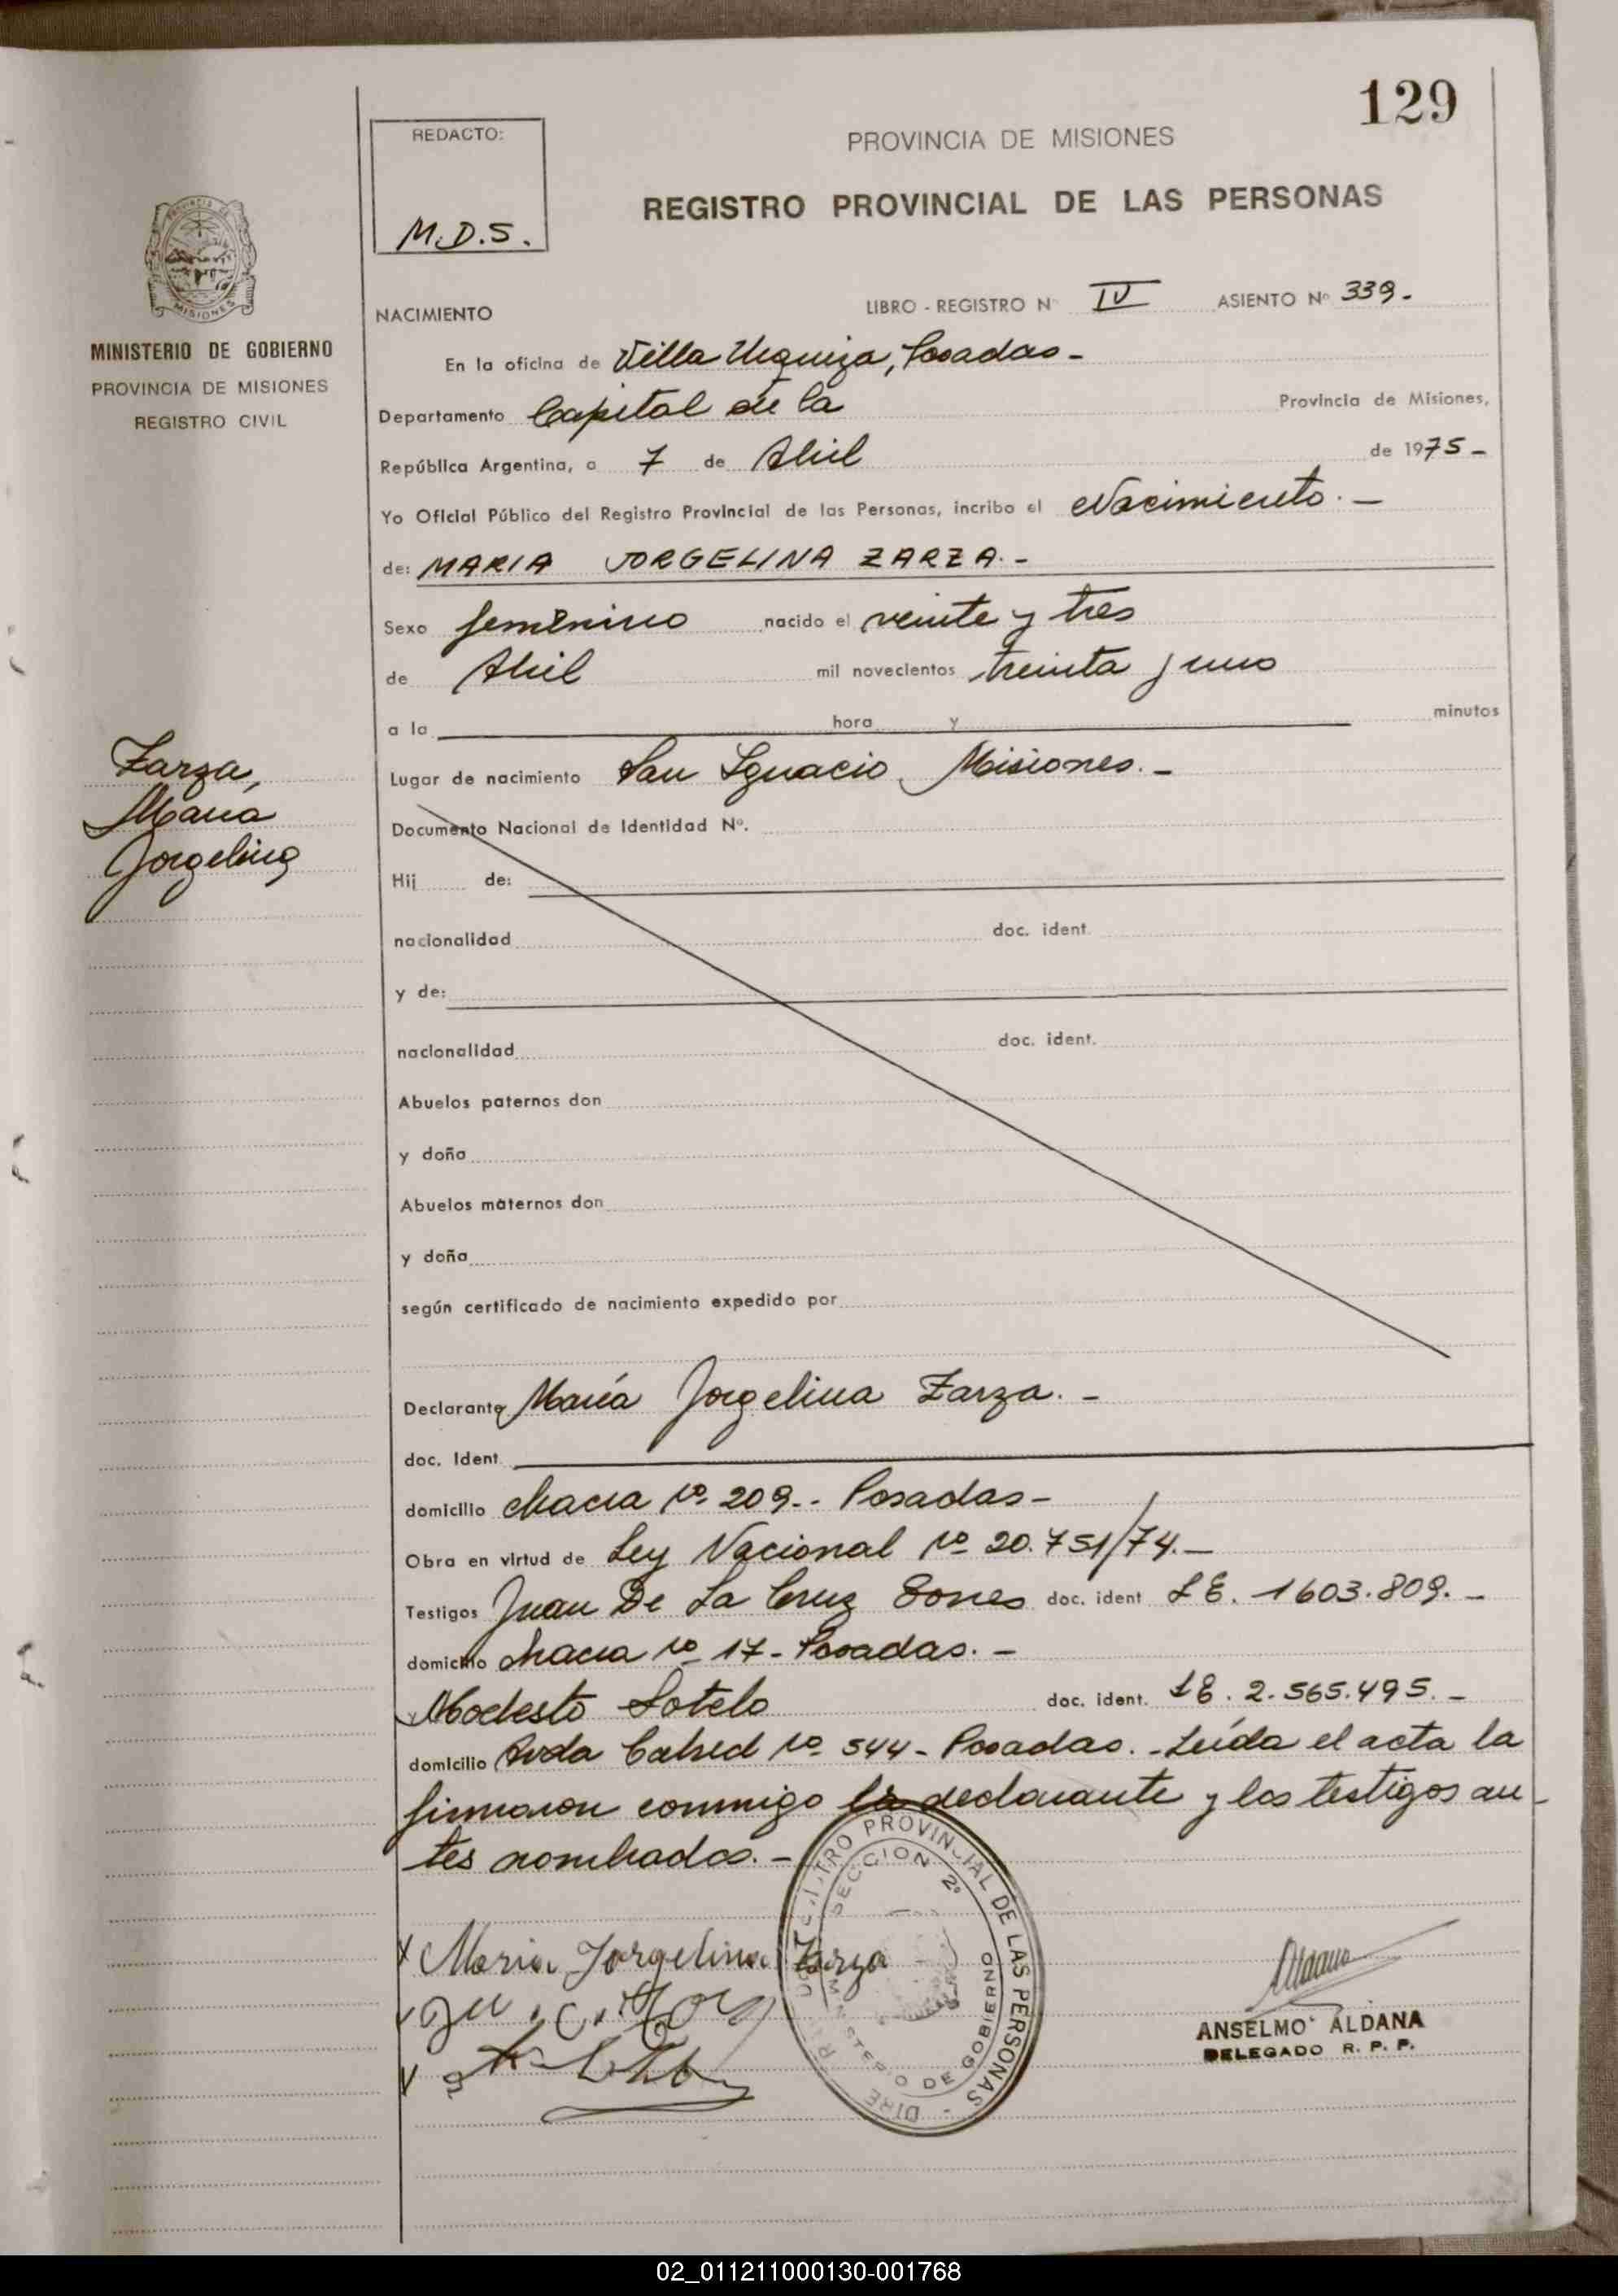 129
REDACTO:
M.D.S.
PROVINCIA DE MISIONES
REGISTRO PROVINCIAL DE LAS PERSONAS
MISIONES
MINISTERIO DE GOBIERNO
PROVINCIA DE MISIONES
REGISTRO CIVIL
NACIMIENTO
LIBRO - REGISTRO Nº IV ASIENTO Nº 339.-
En la oficina de Villa Urquiza, Posadas-
Departamento Capital de la Provincia de Misiones,
República Argentina, a 7 de Abril de 1975-
Yo Oficial Público del Registro Provincial de las Personas, incribo el Nacimiento.-
de: MARIA JORGELINA ZARZA.-
Sexo femenino nacido el veinte y tres
de Abril mil novecientos treinta y uno
a la hora y minutos
Lugar de nacimiento San Ignacio, Misiones.-
Zarza,
María
Jorgelina
Documento Nacional de Identidad Nº.
Hij de:
nacionalidad doc. ident.
y de:
nacionalidad doc. ident.
Abuelos paternos don
y doña
Abuelos maternos don
y doña
según certificado de nacimiento expedido por
Declarante María Jorgelina Zarza.-
doc. Ident.
domicilio chacra nº 209.- Posadas-
Obra en virtud de Ley Nacional nº 20.751/74.-
Testigos Juan De La Cruz doc. ident L E. 1603.809.-
domicilio chacra nº 17- Posadas.-
Modesto Sotelo doc. ident. LE. 2.565.495.-
domicilio Avda Cabred nº 544- Posadas.- Leída el acta la
firmaron conmigo la declarante y los testigos an-
tes nombrados.-
REGISTRO PROVINCIAL DE LAS PERSONAS
SECCION 2º
MINISTERIO DE GOBIERNO
Maria Jorgelina Zarza
ANSELMO ALDANA
DELEGADO R. P. P.
02_011211000130-001768